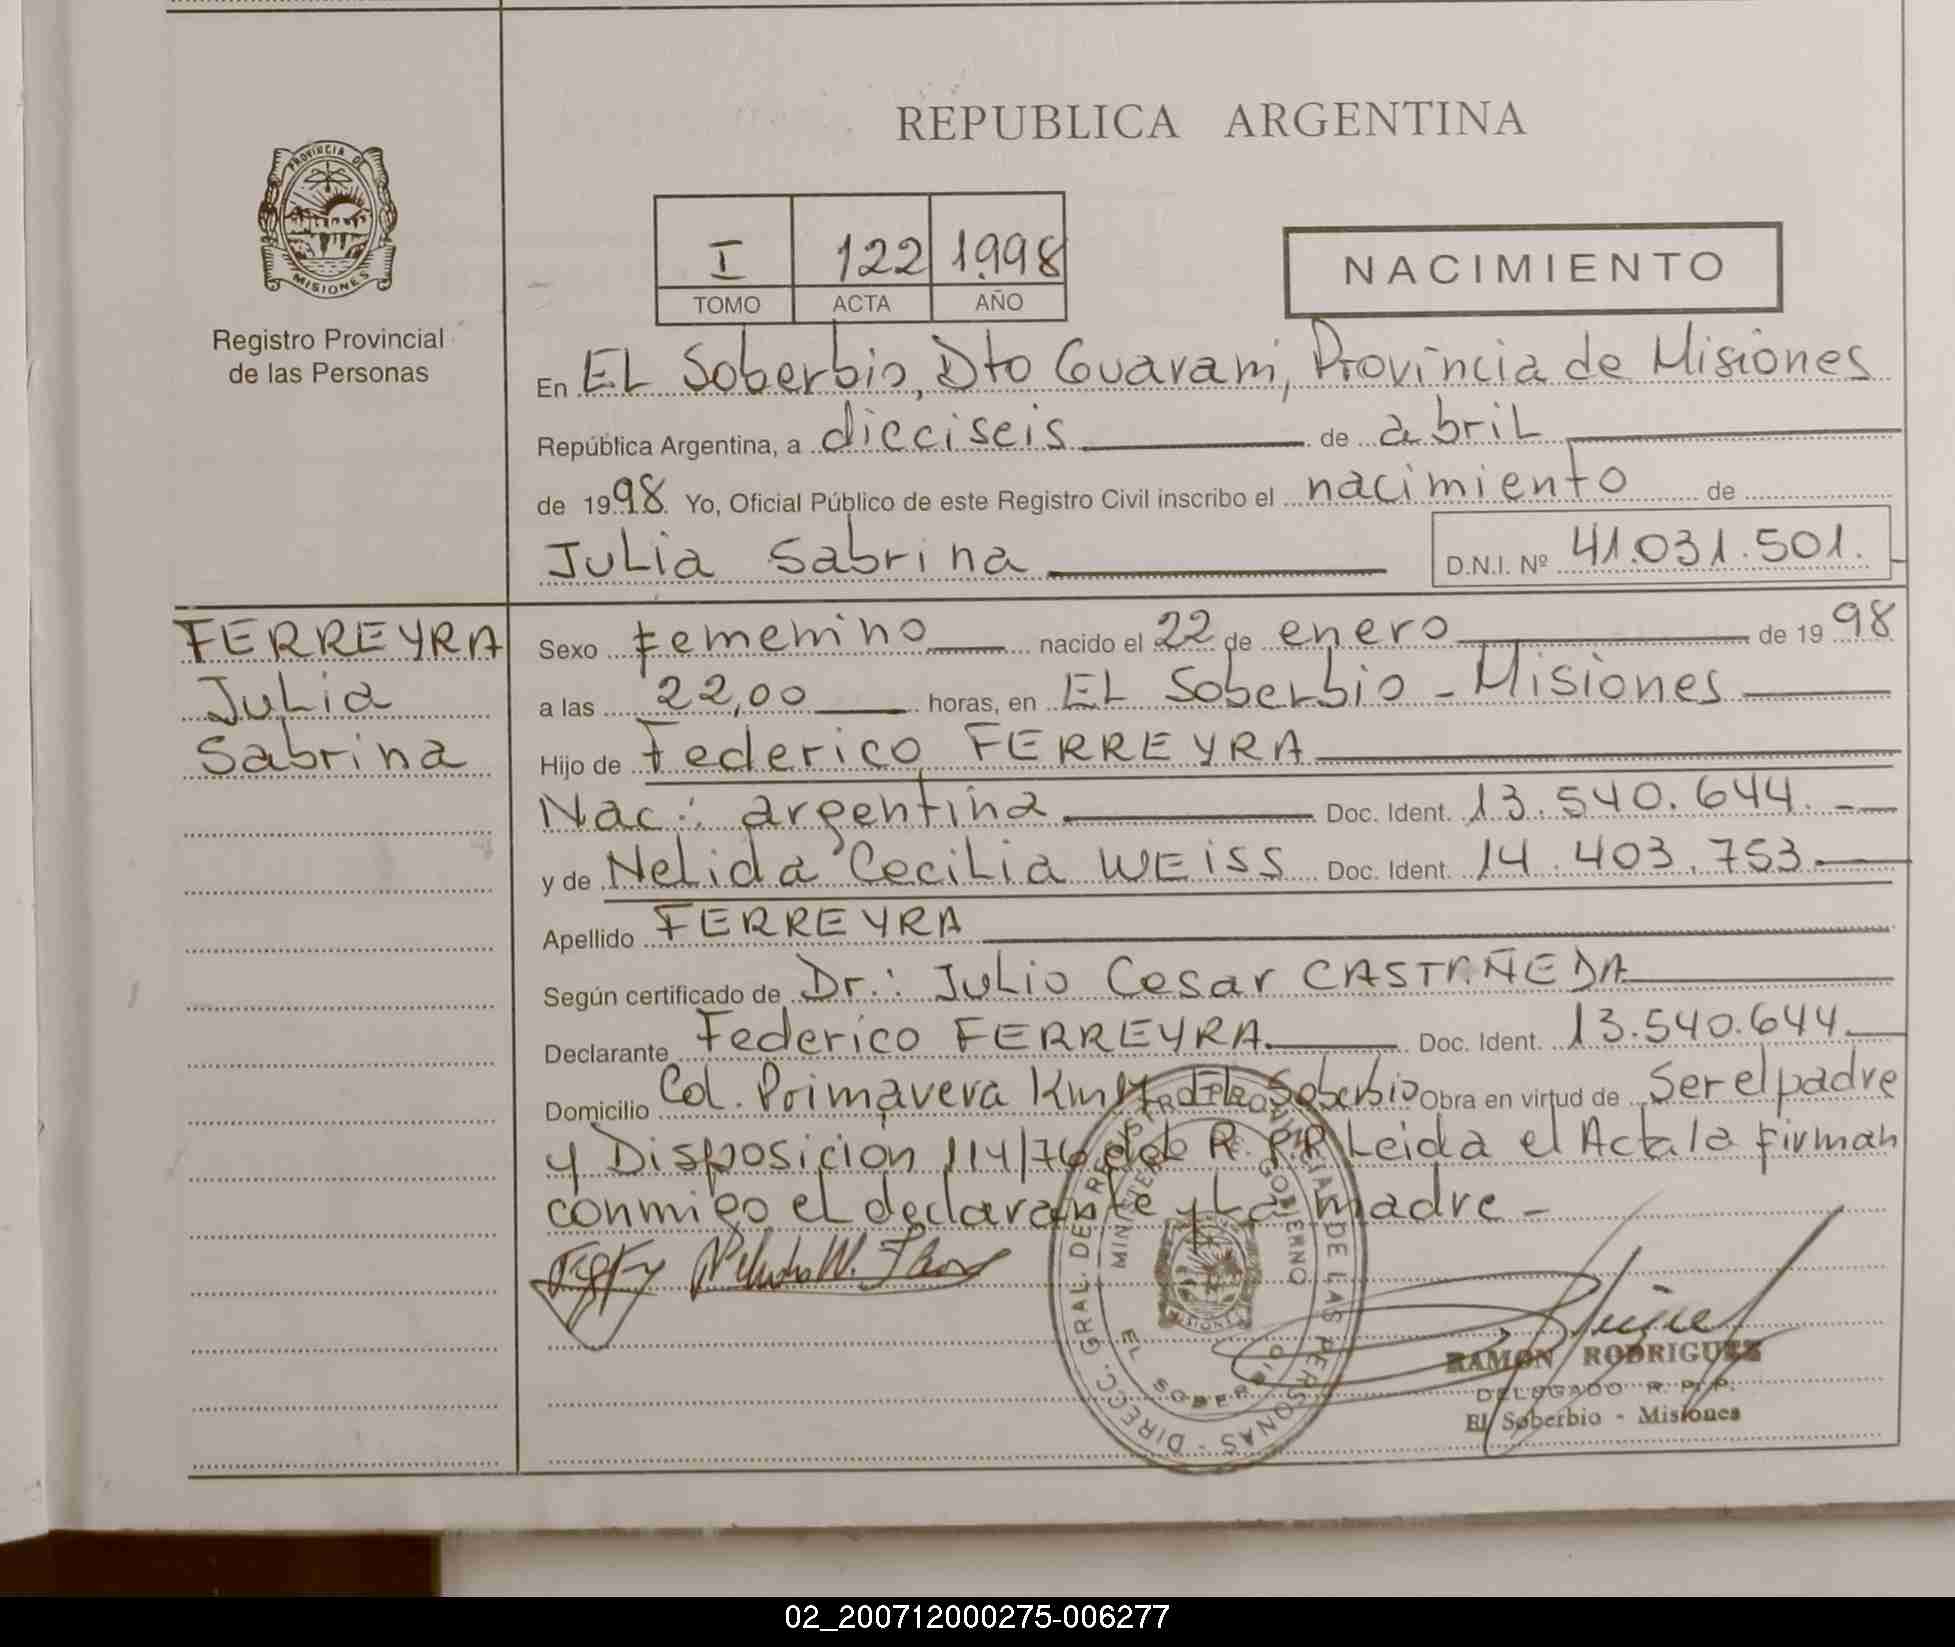 REPUBLICA ARGENTINA
PROVINCIA DE
MISIONES
Registro Provincial
de las Personas
I 122 1998
TOMO ACTA AÑO
NACIMIENTO
En EL Soberbio, Dto Guarani, Provincia de Misiones
República Argentina, a dieciseis de abriL
de 1998 Yo, Oficial Público de este Registro Civil inscribo el nacimiento de
JuLia Sabrina D.N.I. Nº 41.031.501.
FERREYRA
JuLia
Sabrina
Sexo femenino nacido el 22 de enero de 1998
a las 22,00 horas, en EL Soberbio - Misiones
Hijo de Federico FERREYRA
Nac: argentina Doc. Ident. 13.540.644.-
y de Nelida CeciLia WEiSS Doc. Ident. 14.403.753.
Apellido FERREYRA
Según certificado de Dr.: JuLio Cesar CASTAÑEDA
Declarante Federico FERREYRA Doc. Ident. 13.540.644
Domicilio Col. Primavera Soberbio Obra en virtud de Ser el padre
y Disposicion 114/76 del R.P.P. Leida el Acta la firman
conmigo eL declarante y La madre -
DIRECC. GRAL. DE REGISTRO PROVINCIAL DE LAS PERSONAS
MINISTERIO DE GOBIERNO
EL SOBERBIO
MISIONES
RAMON RODRIGUEZ
DELEGADO R. P. P.
El Soberbio - Misiones
02_200712000275-006277